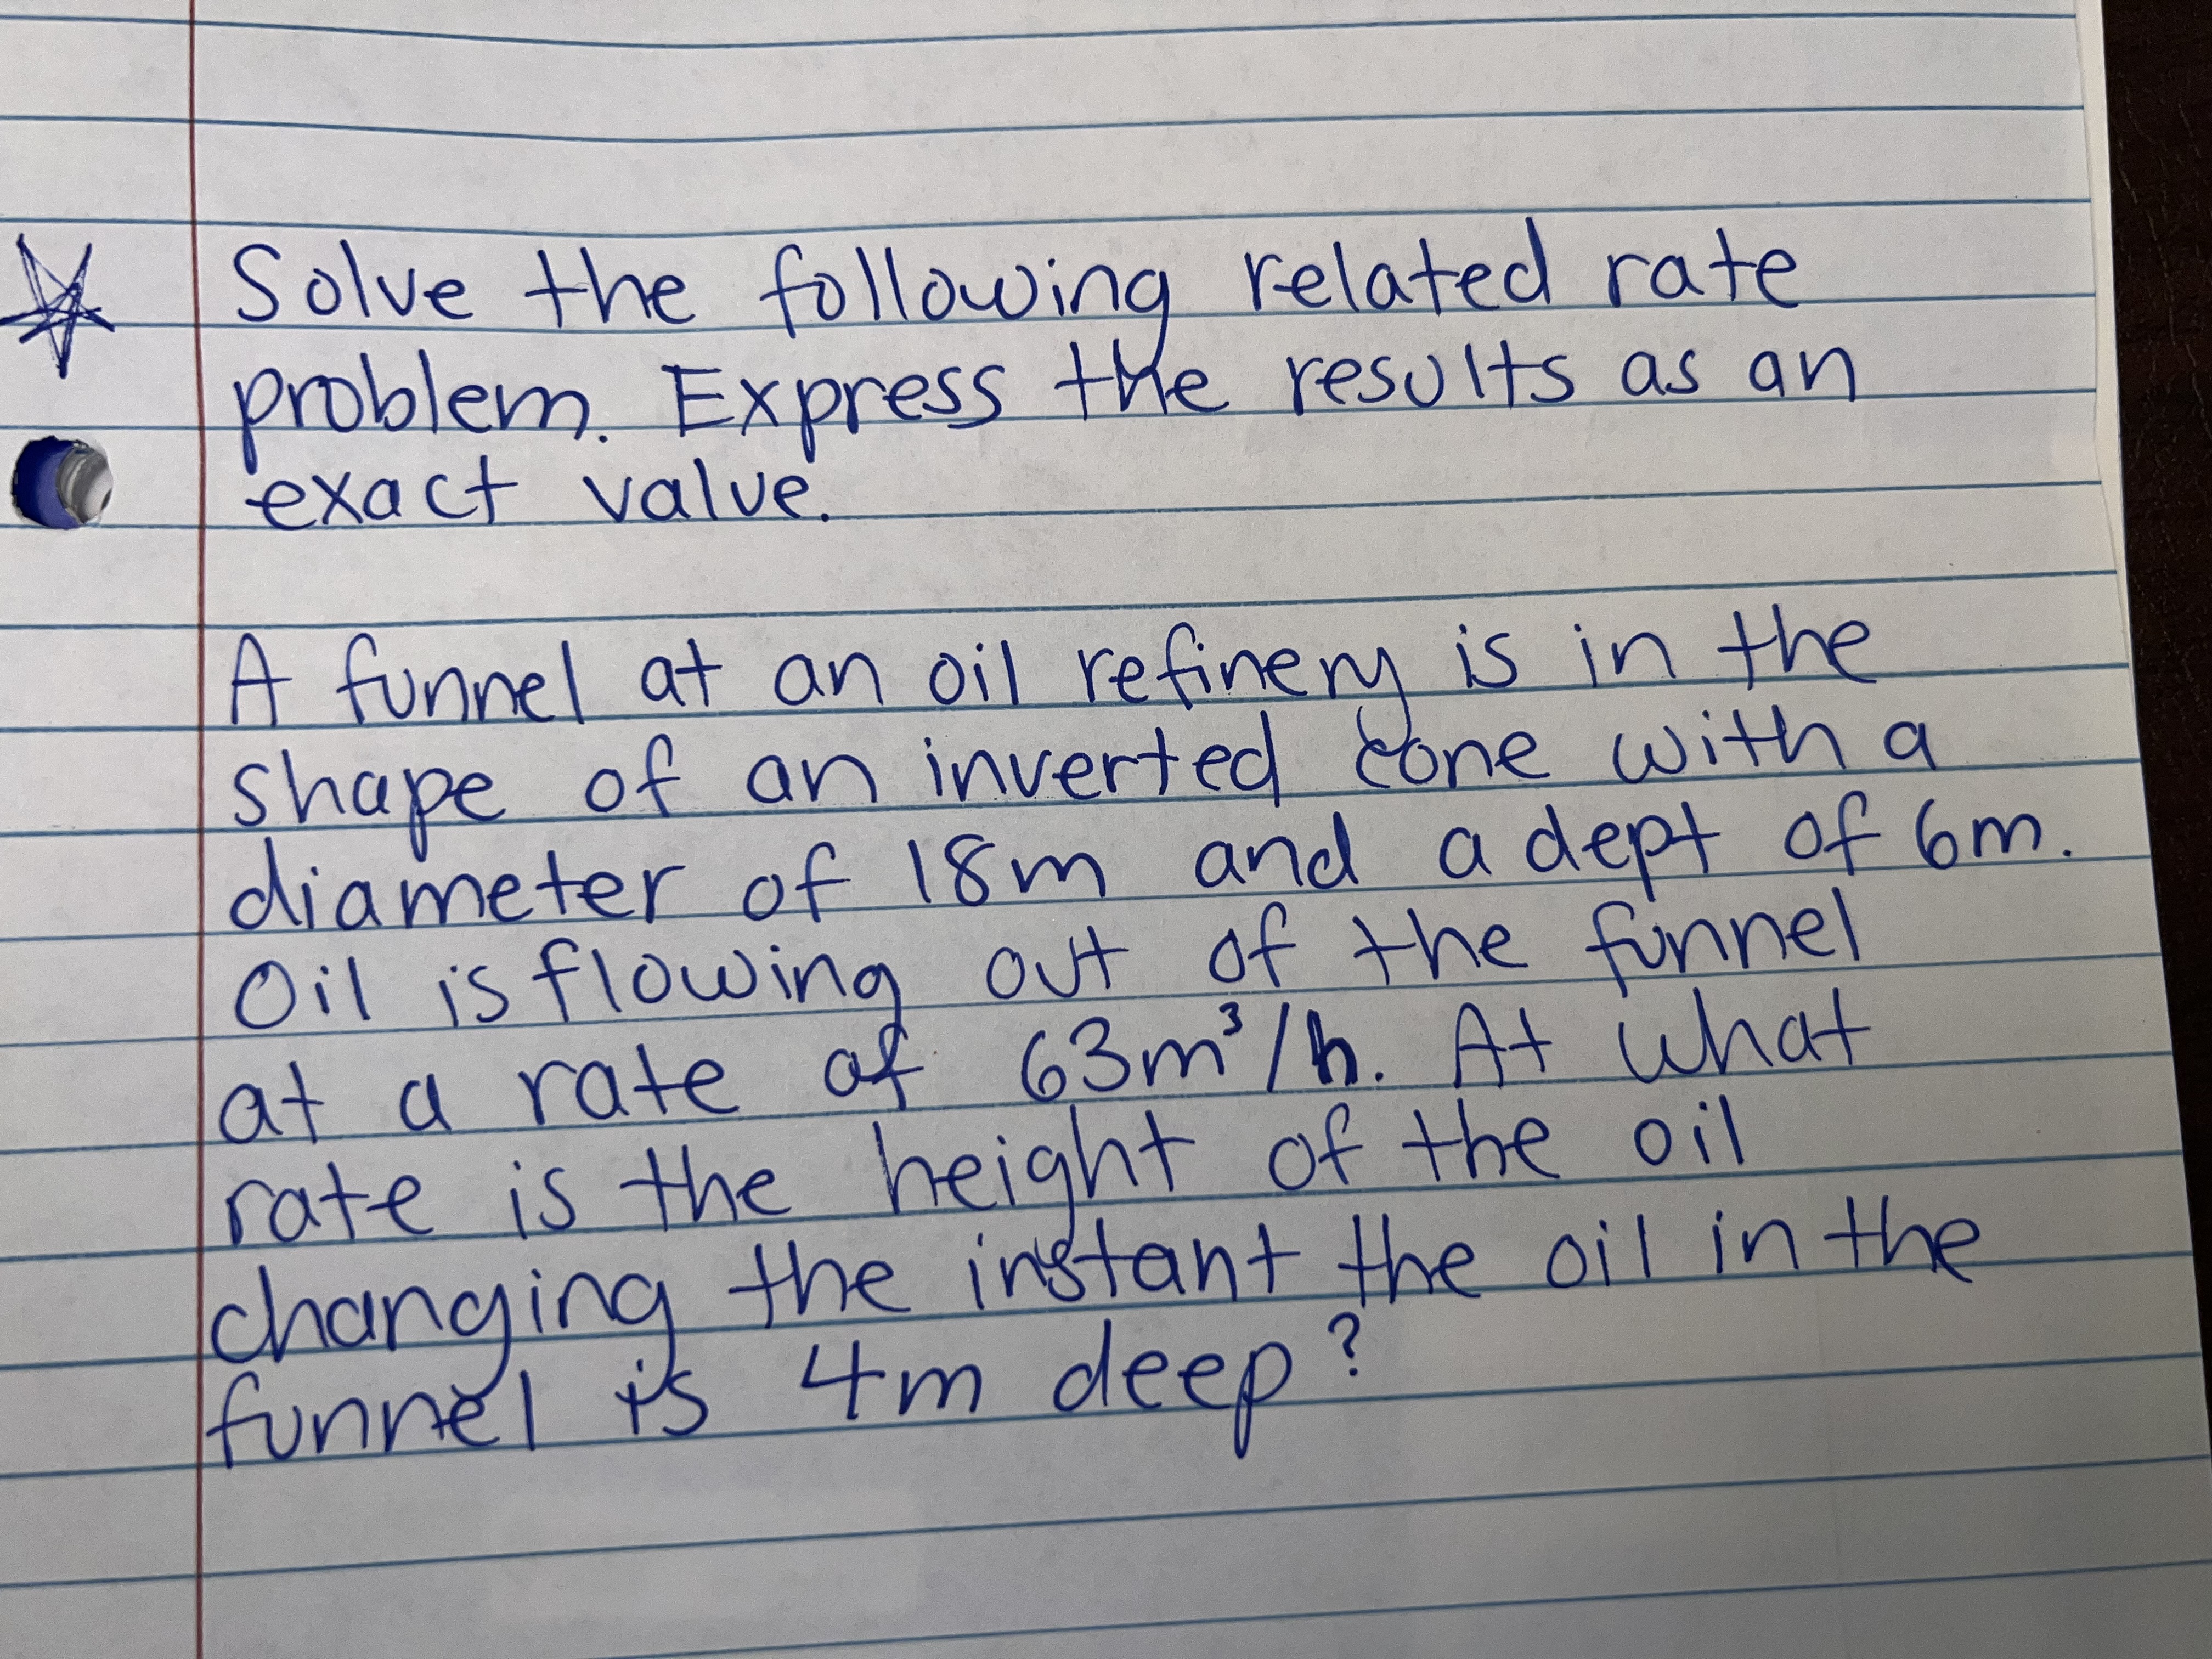 Solve the following related rate
problem. Express the results as an
exact value.
A funnel at an oil refinery is in the
shape of an inverted cone with a
diameter of 18m and a dept of 6m.
Oil is flowing out of the funnel
at a rate of 63m³/h. At what
rate is the height of the oil
changing the instant the oil in the
funnel is 4m deep?